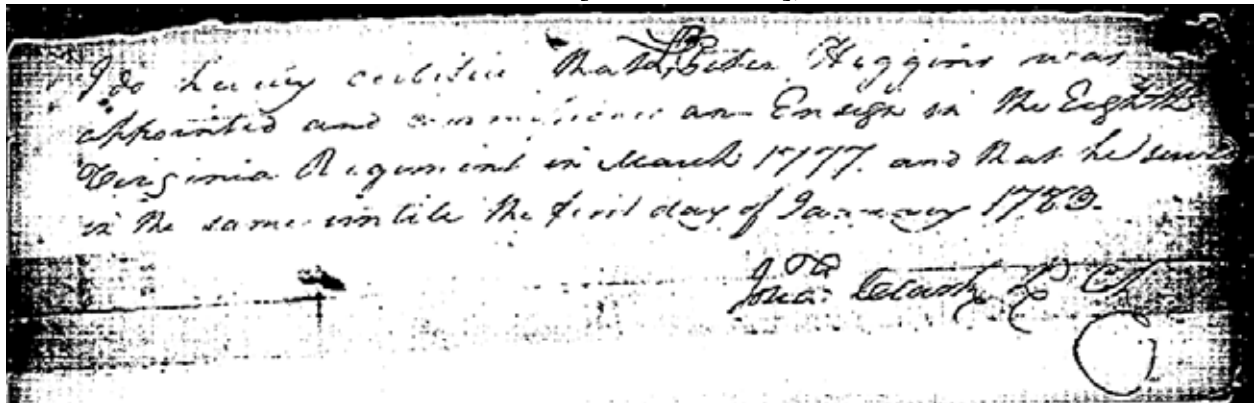 I do hereby certifie that Peter Higgins was
appointed and commissioned an Ensign in the Eighth
Virginia Regiment in March 1777. and that he serv
in the same untile the first day of January 1783.
Jona: Clark L Cl